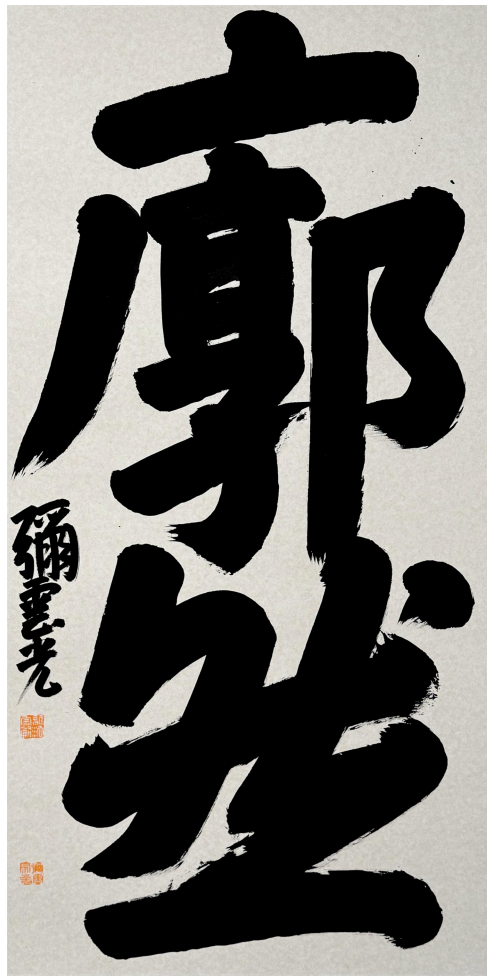 廓然
彌雲光